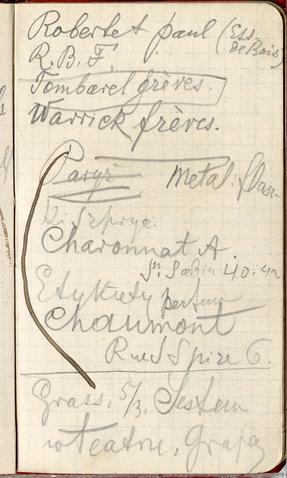 Roberte et paul (Ess.
de Bois)
R. B. F.
Tombarel frères.
Warrick frères.
Paryż Metal: flasz
Charonnat A.
St. Sabin 40.42
Etykiety perfum
Chaumont
Rue S Spire 6.
Grass. 5/3.
w Teatrze.